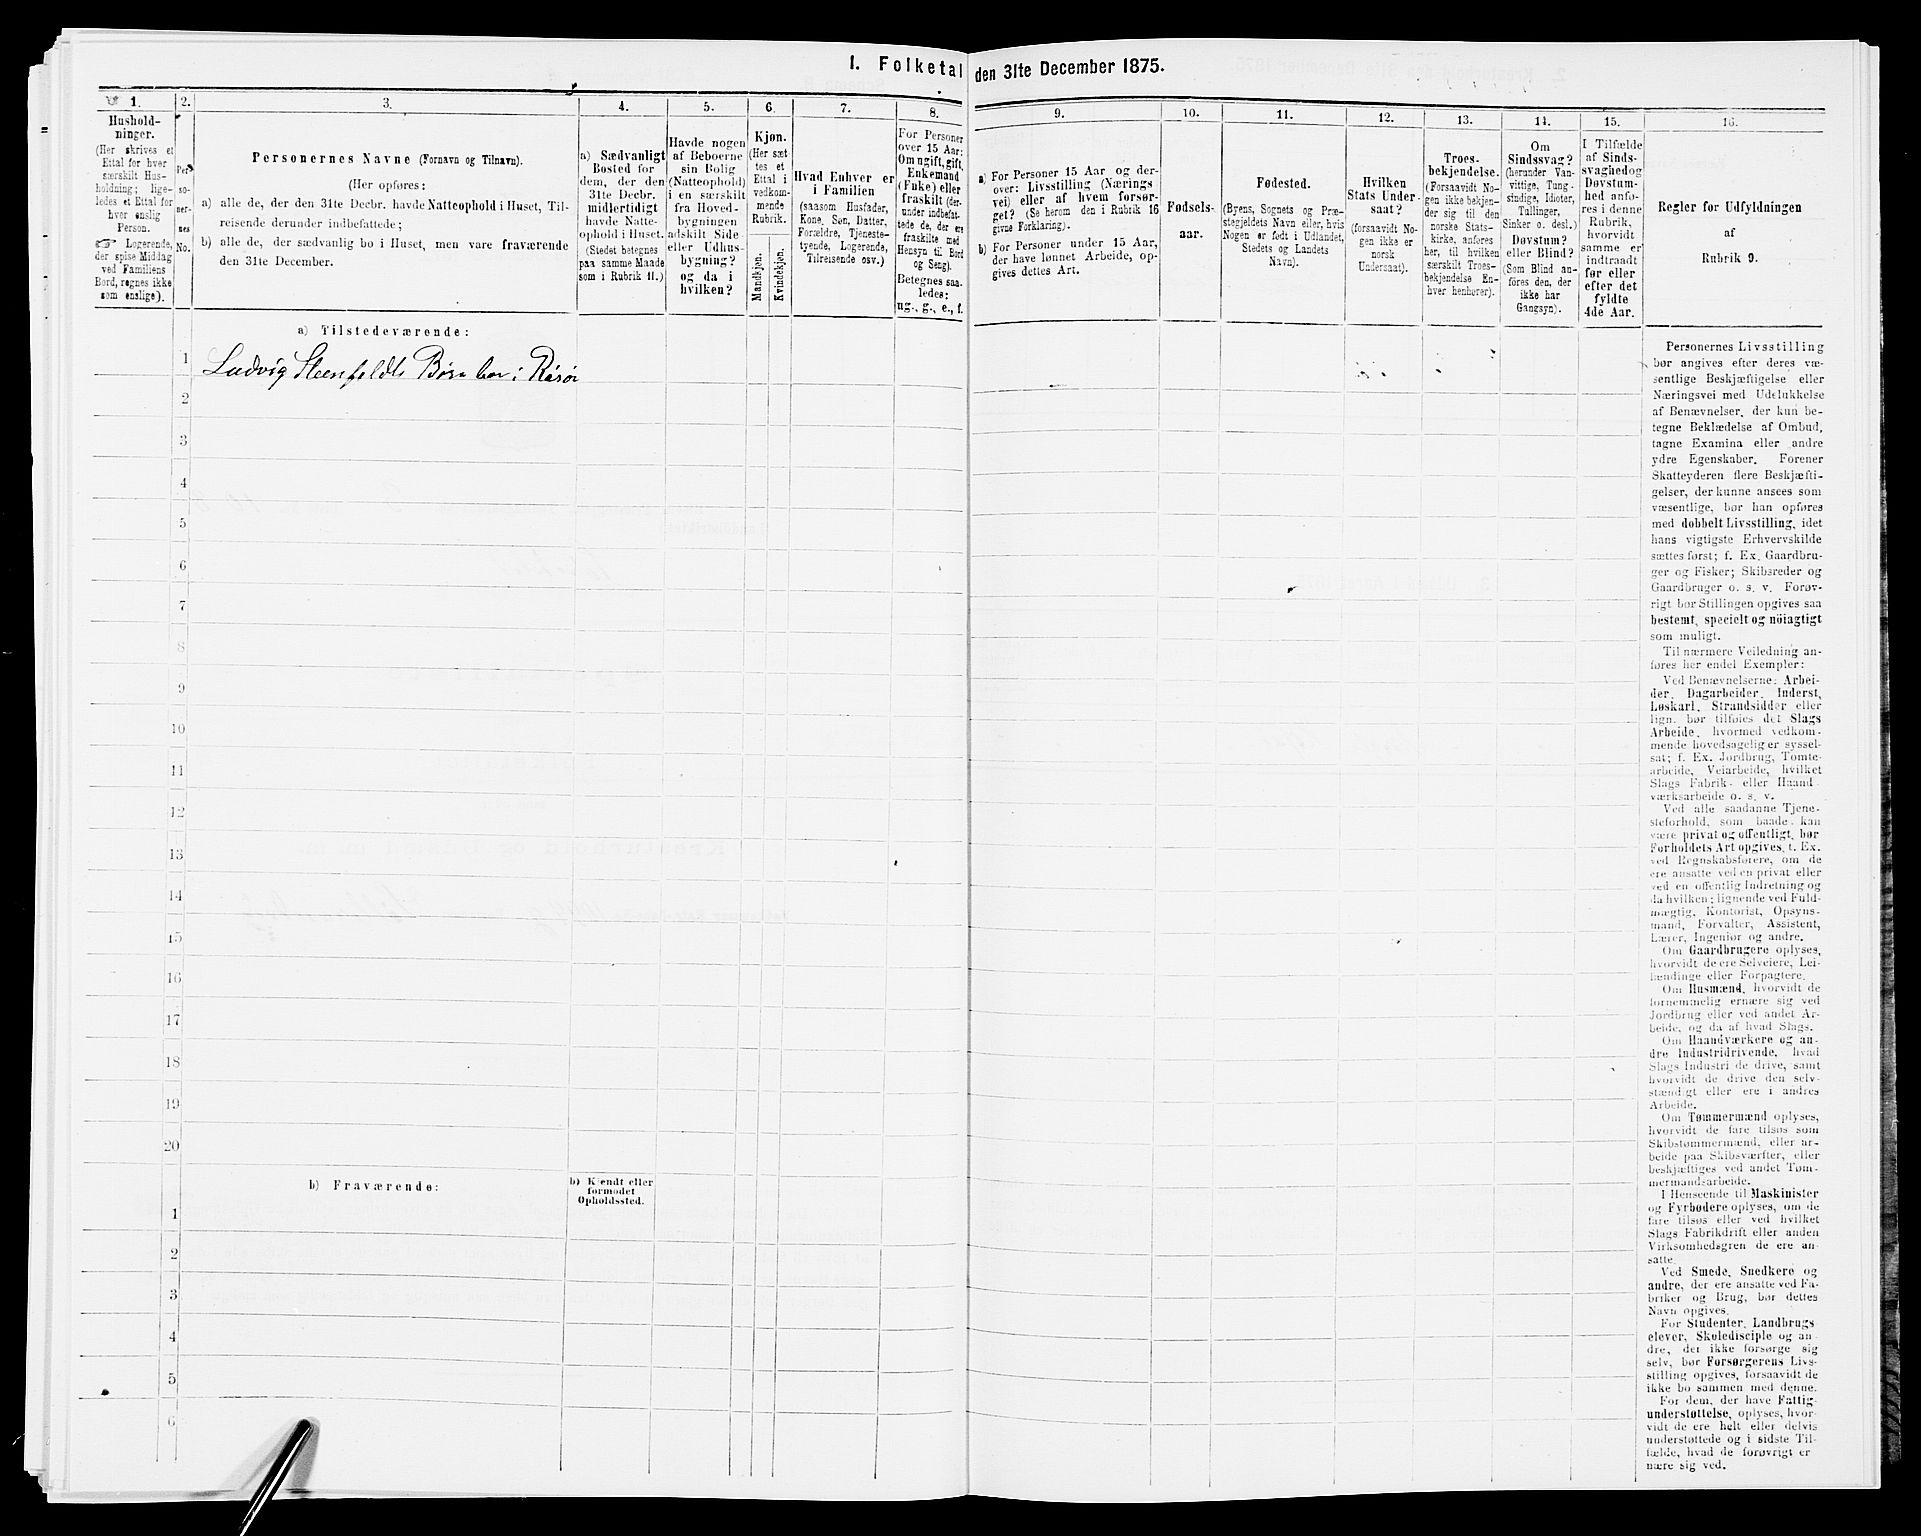 1. Folketal den 31te December 1875.
1.
Hushold-
ninger.
(Her skrives et
Ettal for hver
særskilt Hus-
holdning; lige-
ledes et Ettal for
hver enslig
Person.
☞ Logerende,
der spise Middag
ved Familiens
Bord, regnes ikke
som enslige).
2.
Per-
so-
ner-
nes
No.
3.
Personernes Navne (Fornavn og Tilnavn).
(Her opføres:
a) alle de, der den 31te Decbr. havde Natteophold i Huset, Til-
reisende derunder indbefattede;
b) alle de, der sædvanlig bo i Huset, men vare fraværende
den 31te December.
4.
a) Sædvanligt
Bosted for
dem, der den
31te Decbr.
midlertidigt
havde Natte-
ophold i Huset.
(Stedet betegnes
paa samme Maade
som i Rubrik 11.)
5.
Havde nogen
af Beboerne
sin Bolig
(Natteophold)
i en særskilt
fra Hoved-
bygningen
adskilt Side-
eller Udhus-
bygning?
og da i
hvilken?
6.
Kjøn.
(Her sæt-
tes et
Ettal i
vedkom-
mende
Rubrik.
Mandkjøn.
Kvindekjøn.
7.
Hvad Enhver er
i Familien
(saasom Husfader,
Kone, Søn, Datter,
Forældre, Tjeneste-
tyende, Logerende,
Tilreisende osv.)
8.
For Personer
over 15 Aar:
Om ugift, gift,
Enkemand
(Enke) eller
fraskilt (der-
under indbefat-
tede de, der ere
fraskilte med
Hensyn til Bord
og Seng).
Betegnes saa-
ledes:
ug., g., e., f.
9.
a) For Personer 15 Aar og der-
over: Livsstilling (Nærings
vei) eller af hvem forsør-
get? (Se herom den i Rubrik 16
givne Forklaring).
b) For Personer under 15 Aar,
der have lønnet Arbeide, op-
gives dettes Art.
10.
Fødsels-
aar.
11.
Fødested.
(Byens, Sognets og Præ-
stegjeldets Navn eller, hvis
Nogen er født i Udlandet,
Stedets og Landets
Navn).
12.
Hvilken
Stats Under-
saat?
(forsaavidt No-
gen ikke er
norsk
Undersaat).
13.
Troes-
bekjendelse.
(Forsaavidt No-
gen ikke bekjen-
der sig til den
norske Stats-
kirke, anføres
her, til hvilken
særskilt Troes-
bekjendelse En-
hver henhører).
14.
Om
Sindssvag?
(herunder Van-
vittige, Tung-
sindige, Idioter,
Tullinger,
Sinker o. desl.)
Døvstum?
eller Blind?
(Som Blind an-
føres den, der
ikke har
Gangsyn).
15.
I Tilfælde
af Sinds-
svaghed og
Døvstum-
hed anfø-
res i denne
Rubrik,
hvorvidt
samme er
indtraadt
før eller
efter det
fyldte
4de Aar.
16.
Regler for Udfyldningen
af
Rubrik 9.
a) Tilstedeværende:
1 Ludvig Steenfeldts Børn bor i Risør
2
3
4
5
6
7
8
9
10
11
12
13
14
15
16
17
18
19
20
b) Fraværende:
b) Kjendt eller
formodet
Opholdssted.
1
2
3
4
5
6
Personernes Livsstilling
bør angives efter deres væ-
sentlige Beskjæftigelse eller
Næringsvei med Udelukkelse
af Benævnelser, der kun be-
tegne Beklædelse af Ombud,
tagne Examina eller andre
ydre Egenskaber. Forener
Skatteyderen flere Beskjæfti-
gelser, der kunne ansees som
væsentlige, bør han opføres
med dobbelt Livsstilling, idet
hans vigtigste Erhvervskilde
sættes først; f. Ex. Gaardbru-
ger og Fisker; Skibsreder og
Gaardbruger o. s. v. Forøv-
rigt bør Stillingen opgives saa
bestemt, specielt og nöiagtigt
som muligt.
Til nærmere Veiledning an-
føres her endel Exempler:
Ved Benævnelserne: Arbei-
der, Dagarbeider, Inderst,
Løskarl, Strandsidder eller
lign. bør tilføies det Slags
Arbeide, hvormed vedkom-
mende hovedsagelig er syssel-
sat; f. Ex. Jordbrug, Tomte-
arbeide, Veiarbeide, hvilket
Slags Fabrik- eller Haand
værksarbeide o. s. v.
Ved alle saadanne Tjene-
steforhold, som baade kan
være privat og offentligt, bør
Forholdets Art opgives, t. Ex.
ved Regnskabsførere, om de
ere ansatte ved en privat eller
ved en offentlig Indretning og
da hvilken; lignende ved Fuld-
mægtig, Kontorist, Opsyns-
mand, Forvalter, Assistent,
Lærer, Ingeniør og andre.
Om Gaardbrugere oplyses,
hvorvidt de ere Selveiere, Lei-
lændinge eller Forpagtere.
Om Husmænd, hvorvidt de
fornemmelig ernære sig ved
Jordbrug eller ved andet Ar-
beide, og da af hvad Slags.
Om Haandværkere og an-
dre Industridrivende, hvad
Slags Industri de drive, samt
hvorvidt de drive den selv-
stændigt eller ere i andres
Arbeide.
Om Tømmermænd oplyses,
hvorvidt de fare tilsøs som
Skibstømmermænd, eller ar-
beide paa Skibsværfter, eller
beskjæftiges ved andet Tøm-
mermandsarbeide.
I Henseende til Maskinister
og Fyrbødere oplyses, om de
fare tilsøs eller ved hvilket
Slags Fabrikdrift eller anden
Virksomhedsgren de ere an-
satte.
Ved Smede, Snedkere og
andre, der ere ansatte ved Fa-
briker og Brug, bør dettes
Navn opgives.
For Studenter, Landbrugs
elever, Skoledisciple og an-
dre, der ikke forsørge sig
selv, bør Forsørgerens Livs-
stilling opgives, forsaavidt de
ikke bo sammen med denne.
For dem, der have Fattig-
understøttelse, oplyses, hvor-
vidt de ere helt eller delvis
understøttede og i sidste Til-
fælde, hvad de forøvrigt er
nære sig ved.